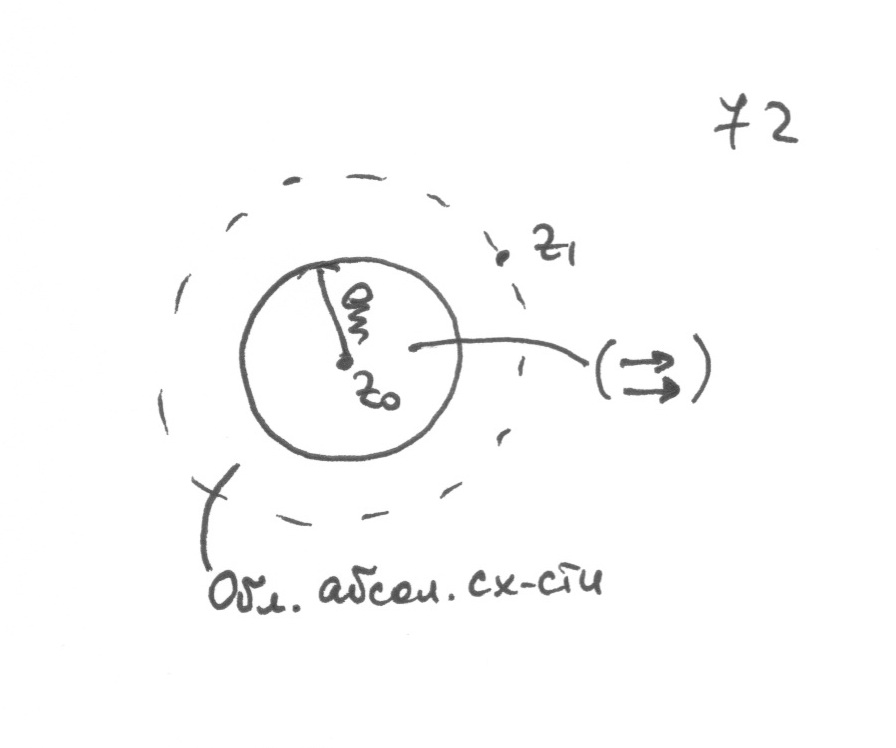 72
z₁
z₀
(⇉)
Обл. абсол. сх-сти